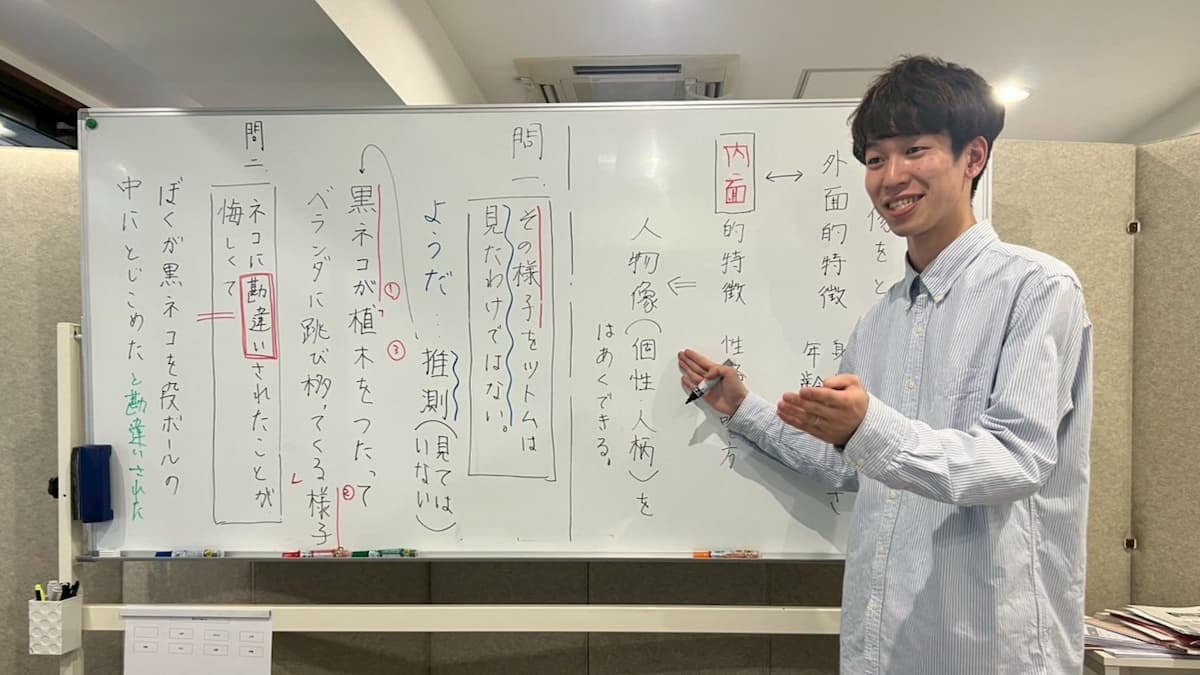 像をと
外面的特徴 年齢 さ
↔
内面的特徴 方
⇐
人物像(個性・人柄)を
はあくできる。
問一.
その様子をツトムは
見たわけではない。
ようだ…推測(見ては
いない)
黒ネコが植木をつたって
ベランダに跳び移ってくる様子
①
③
②
問二.
ネコに勘違いされたことが
悔しくて
ぼくが黒ネコを段ボールの
中にとじこめたと勘違いされた